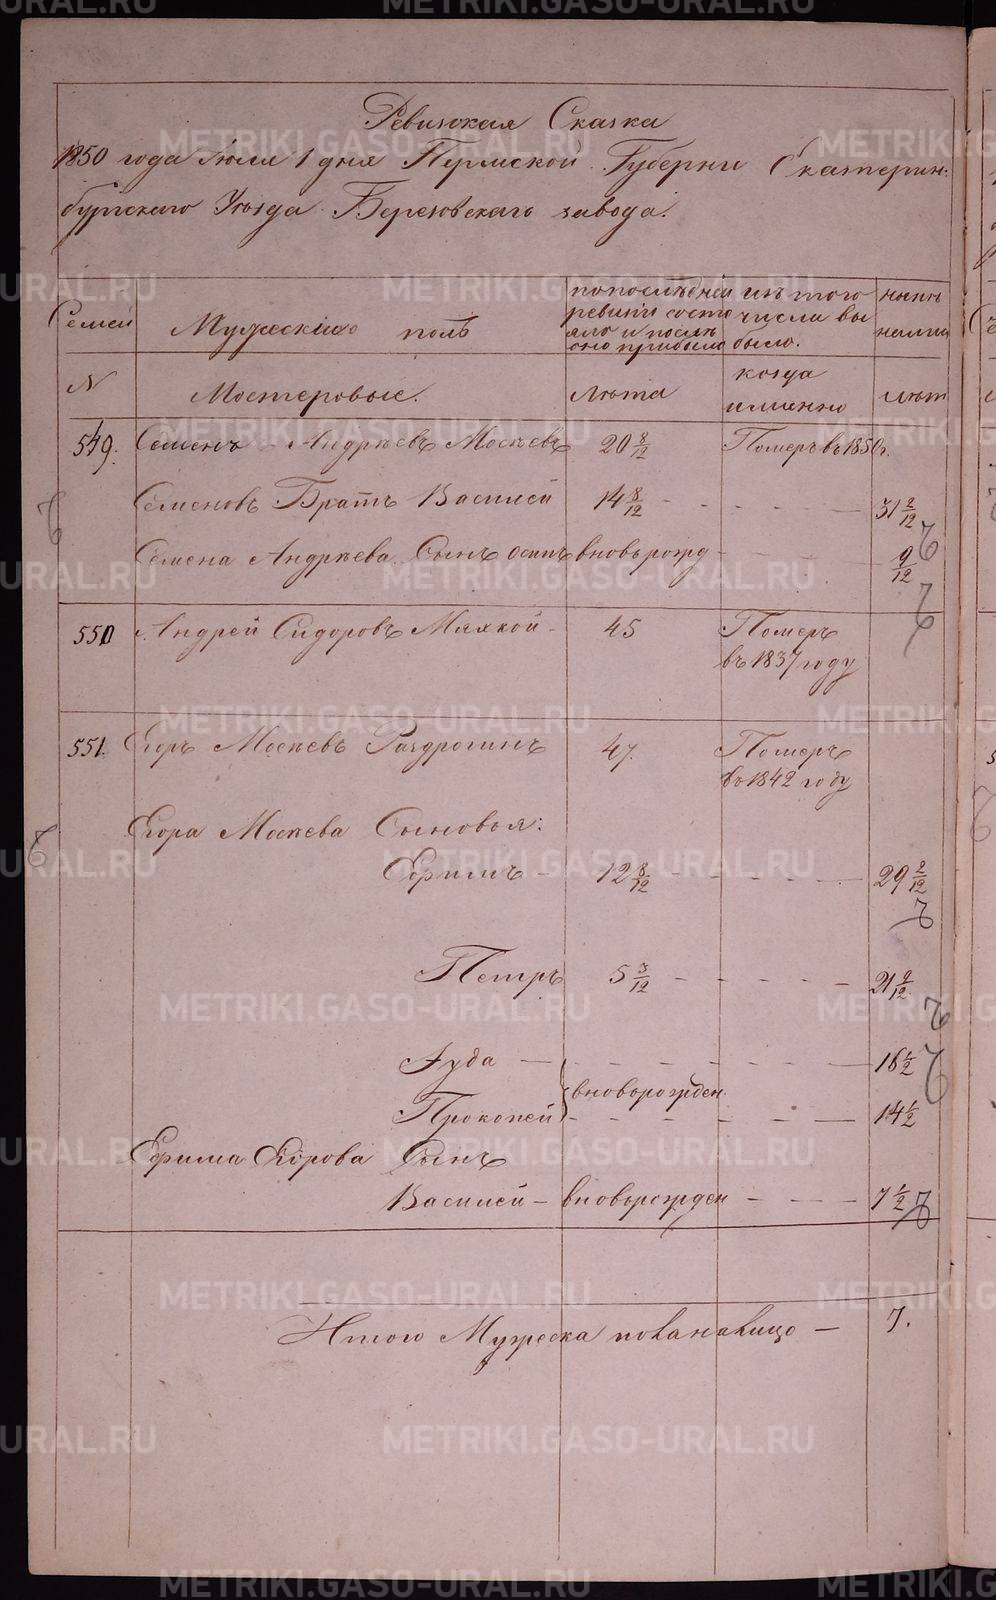 Ревизская Сказка
1850 года Июля 1 дня Пермской Губерни Екатерин-
бургского Уезда Березовскаго завода.
Семей
Мужескаго полъ
попоследней
ревизги состо
яло и после
оно прибыло
изъ того
числа вы
было.
ныне
налицо
N
Мостеровые.
Люта
когда
именно
лют
549.
Семенъ Андреевъ Москвевъ
20 8/12
Померъ въ 1850 г.
Семеновъ Братъ Василей
14 8/12
31 2/12
Семена Андреева Сынъ Осипъ
вновь рожд
9/12
550
Андрей Сидоровъ Мяхкой
45
Померъ
въ 1837 году
551.
Егоръ Москевъ Раздрогинъ
47.
Померъ
въ 1842 году
Егора Москева Сыновья:
Ефимъ
12 8/12
29 2/12
Петръ
5 3/12
21 9/12
Іуда
16 1/2
вновьрожден
Прокопей
14 1/2
Ефима Егорова Сынъ
Василей
вновьрожден
7 1/2
Итого Мужеска пола налицо
7.
METRIKI.GASO-URAL.RU